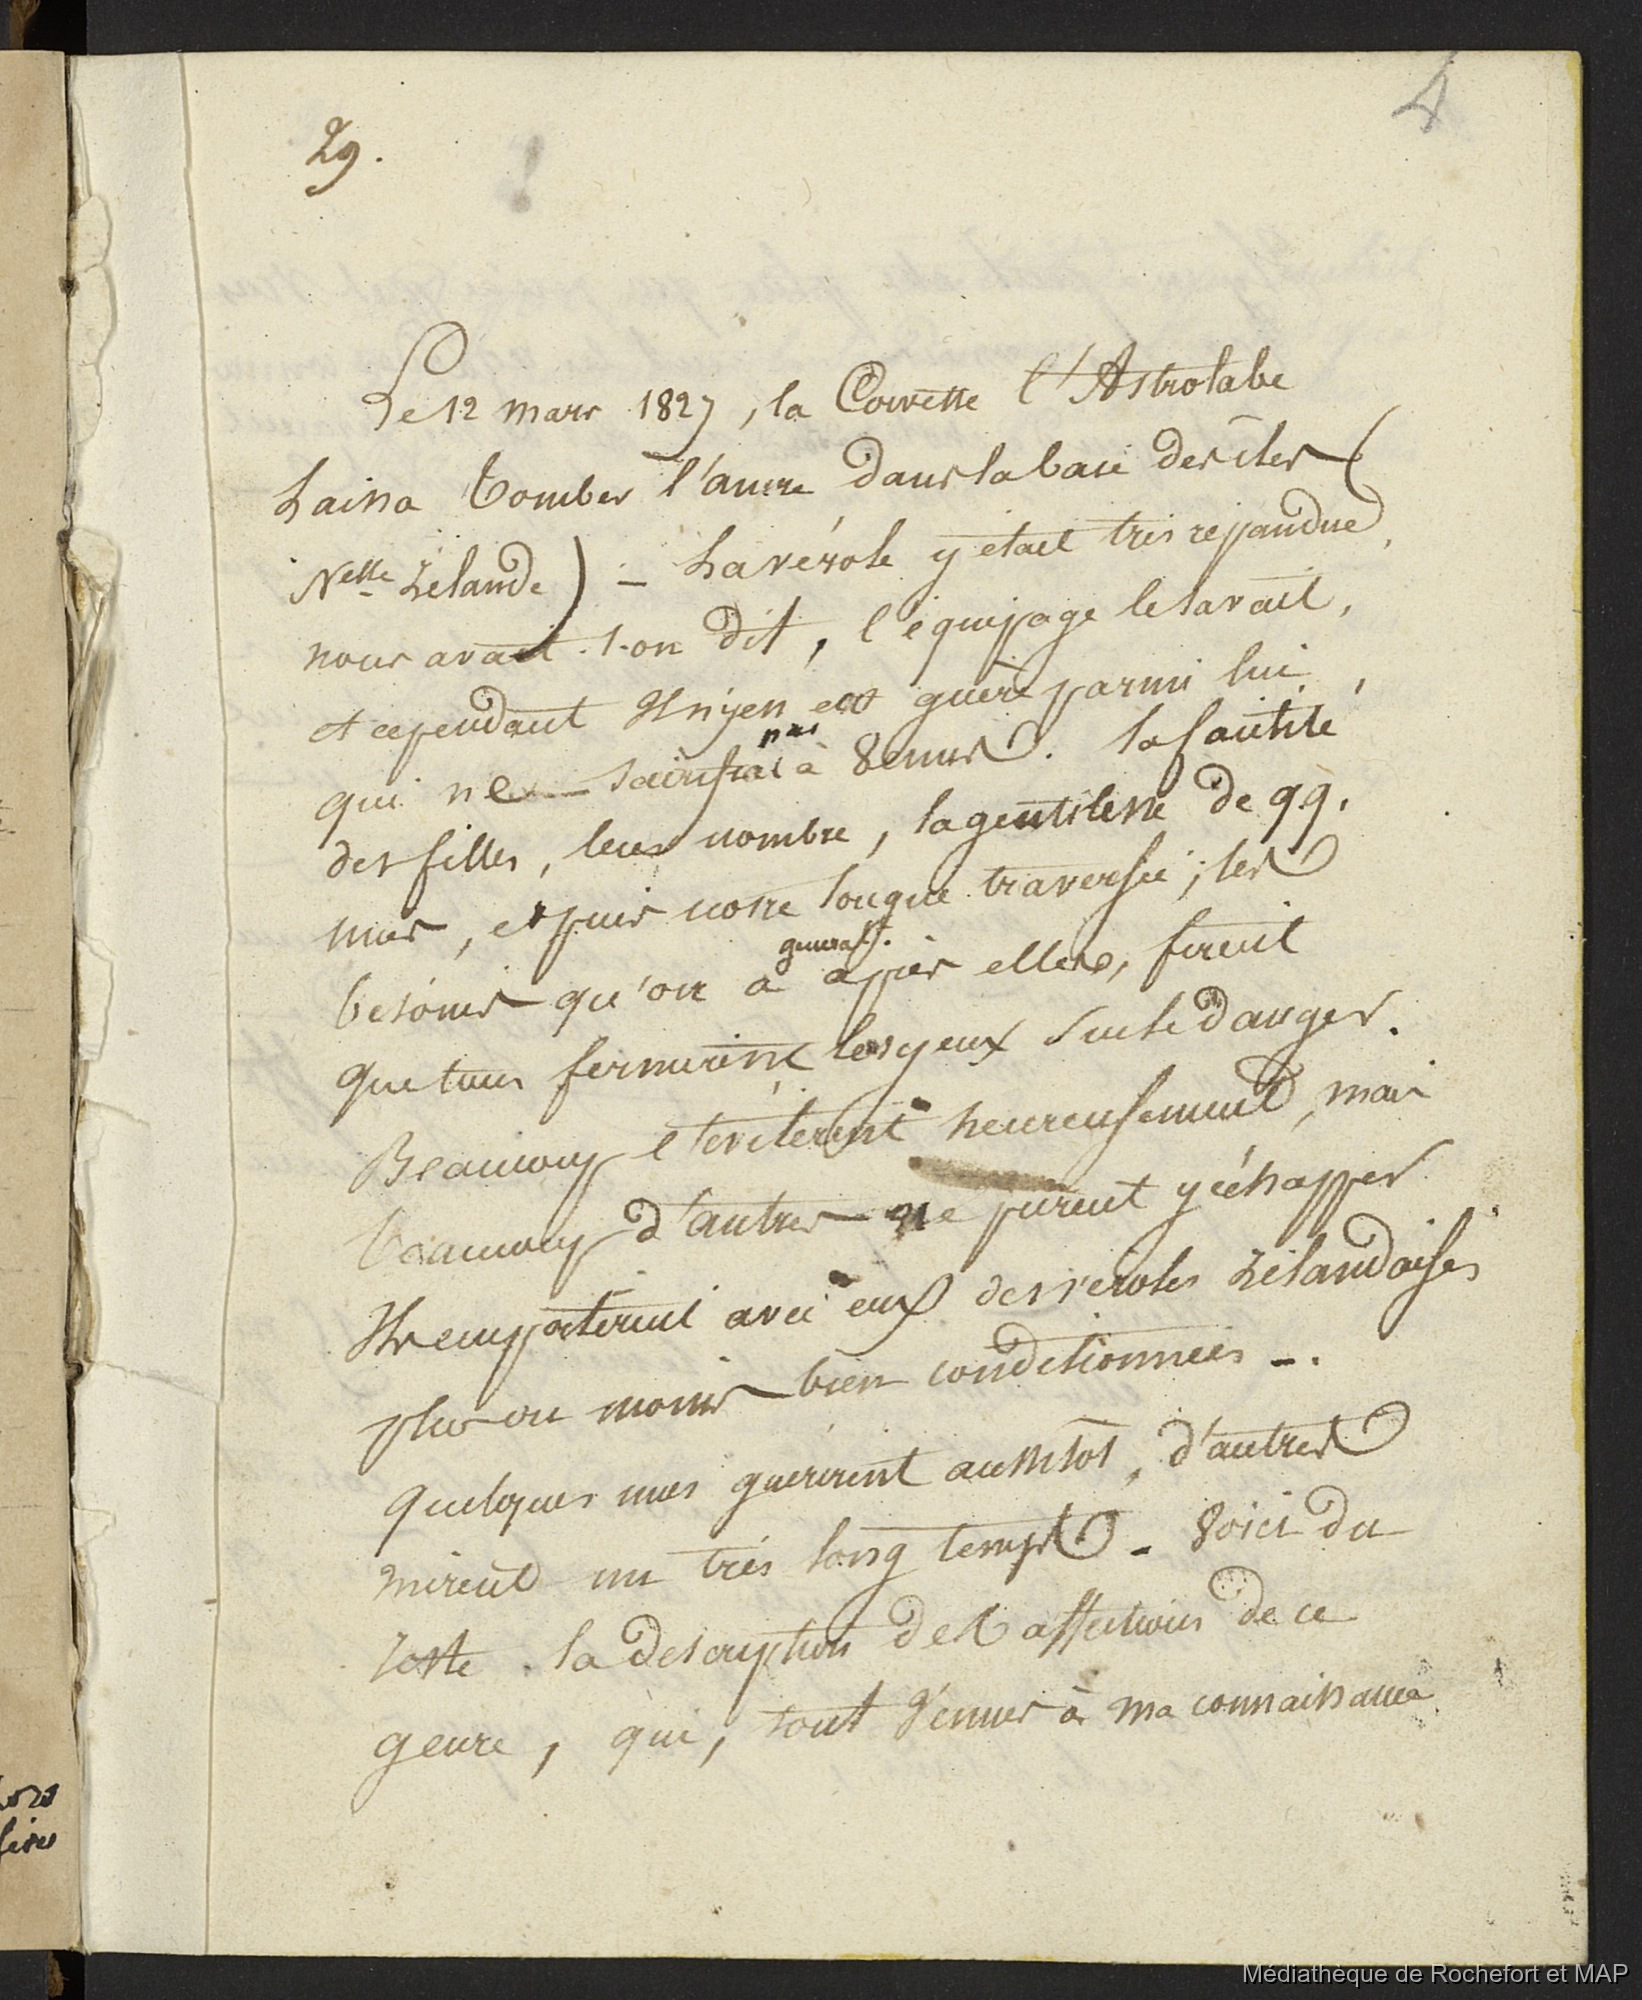 4
29.
Le 12 mars 1827, la Corvette l'Astrolabe
Laissa tomber l'ancre dans la baie des îles (
Nelle Zélande) – La vérole y était très répandue,
nous avait-t-on dit, l'équipage le savait,
et cependant Il n'y en eut guère parmi lui,
qui ne sacrifia pas à Vénus. la facilité
des filles, leur nombre, la gentillesse de qq.
unes, et puis notre longue traversée, les
besoins qu'on a généralt. après elles, firent
que tous fermèrent les yeux sur le danger.
Beaucoup l'évitèrent heureusement, mais
beaucoup d'autres ne purent y échapper
Ils emportèrent avec eux des véroles zélandaises
plus ou moins bien conditionnées –.
quelques unes guérirent aussitôt, d'autres
mirent un très long temps – Voici du
reste la description des affections de ce
genre, qui, sont venues à ma connaissance
Médiathèque de Rochefort et MAP